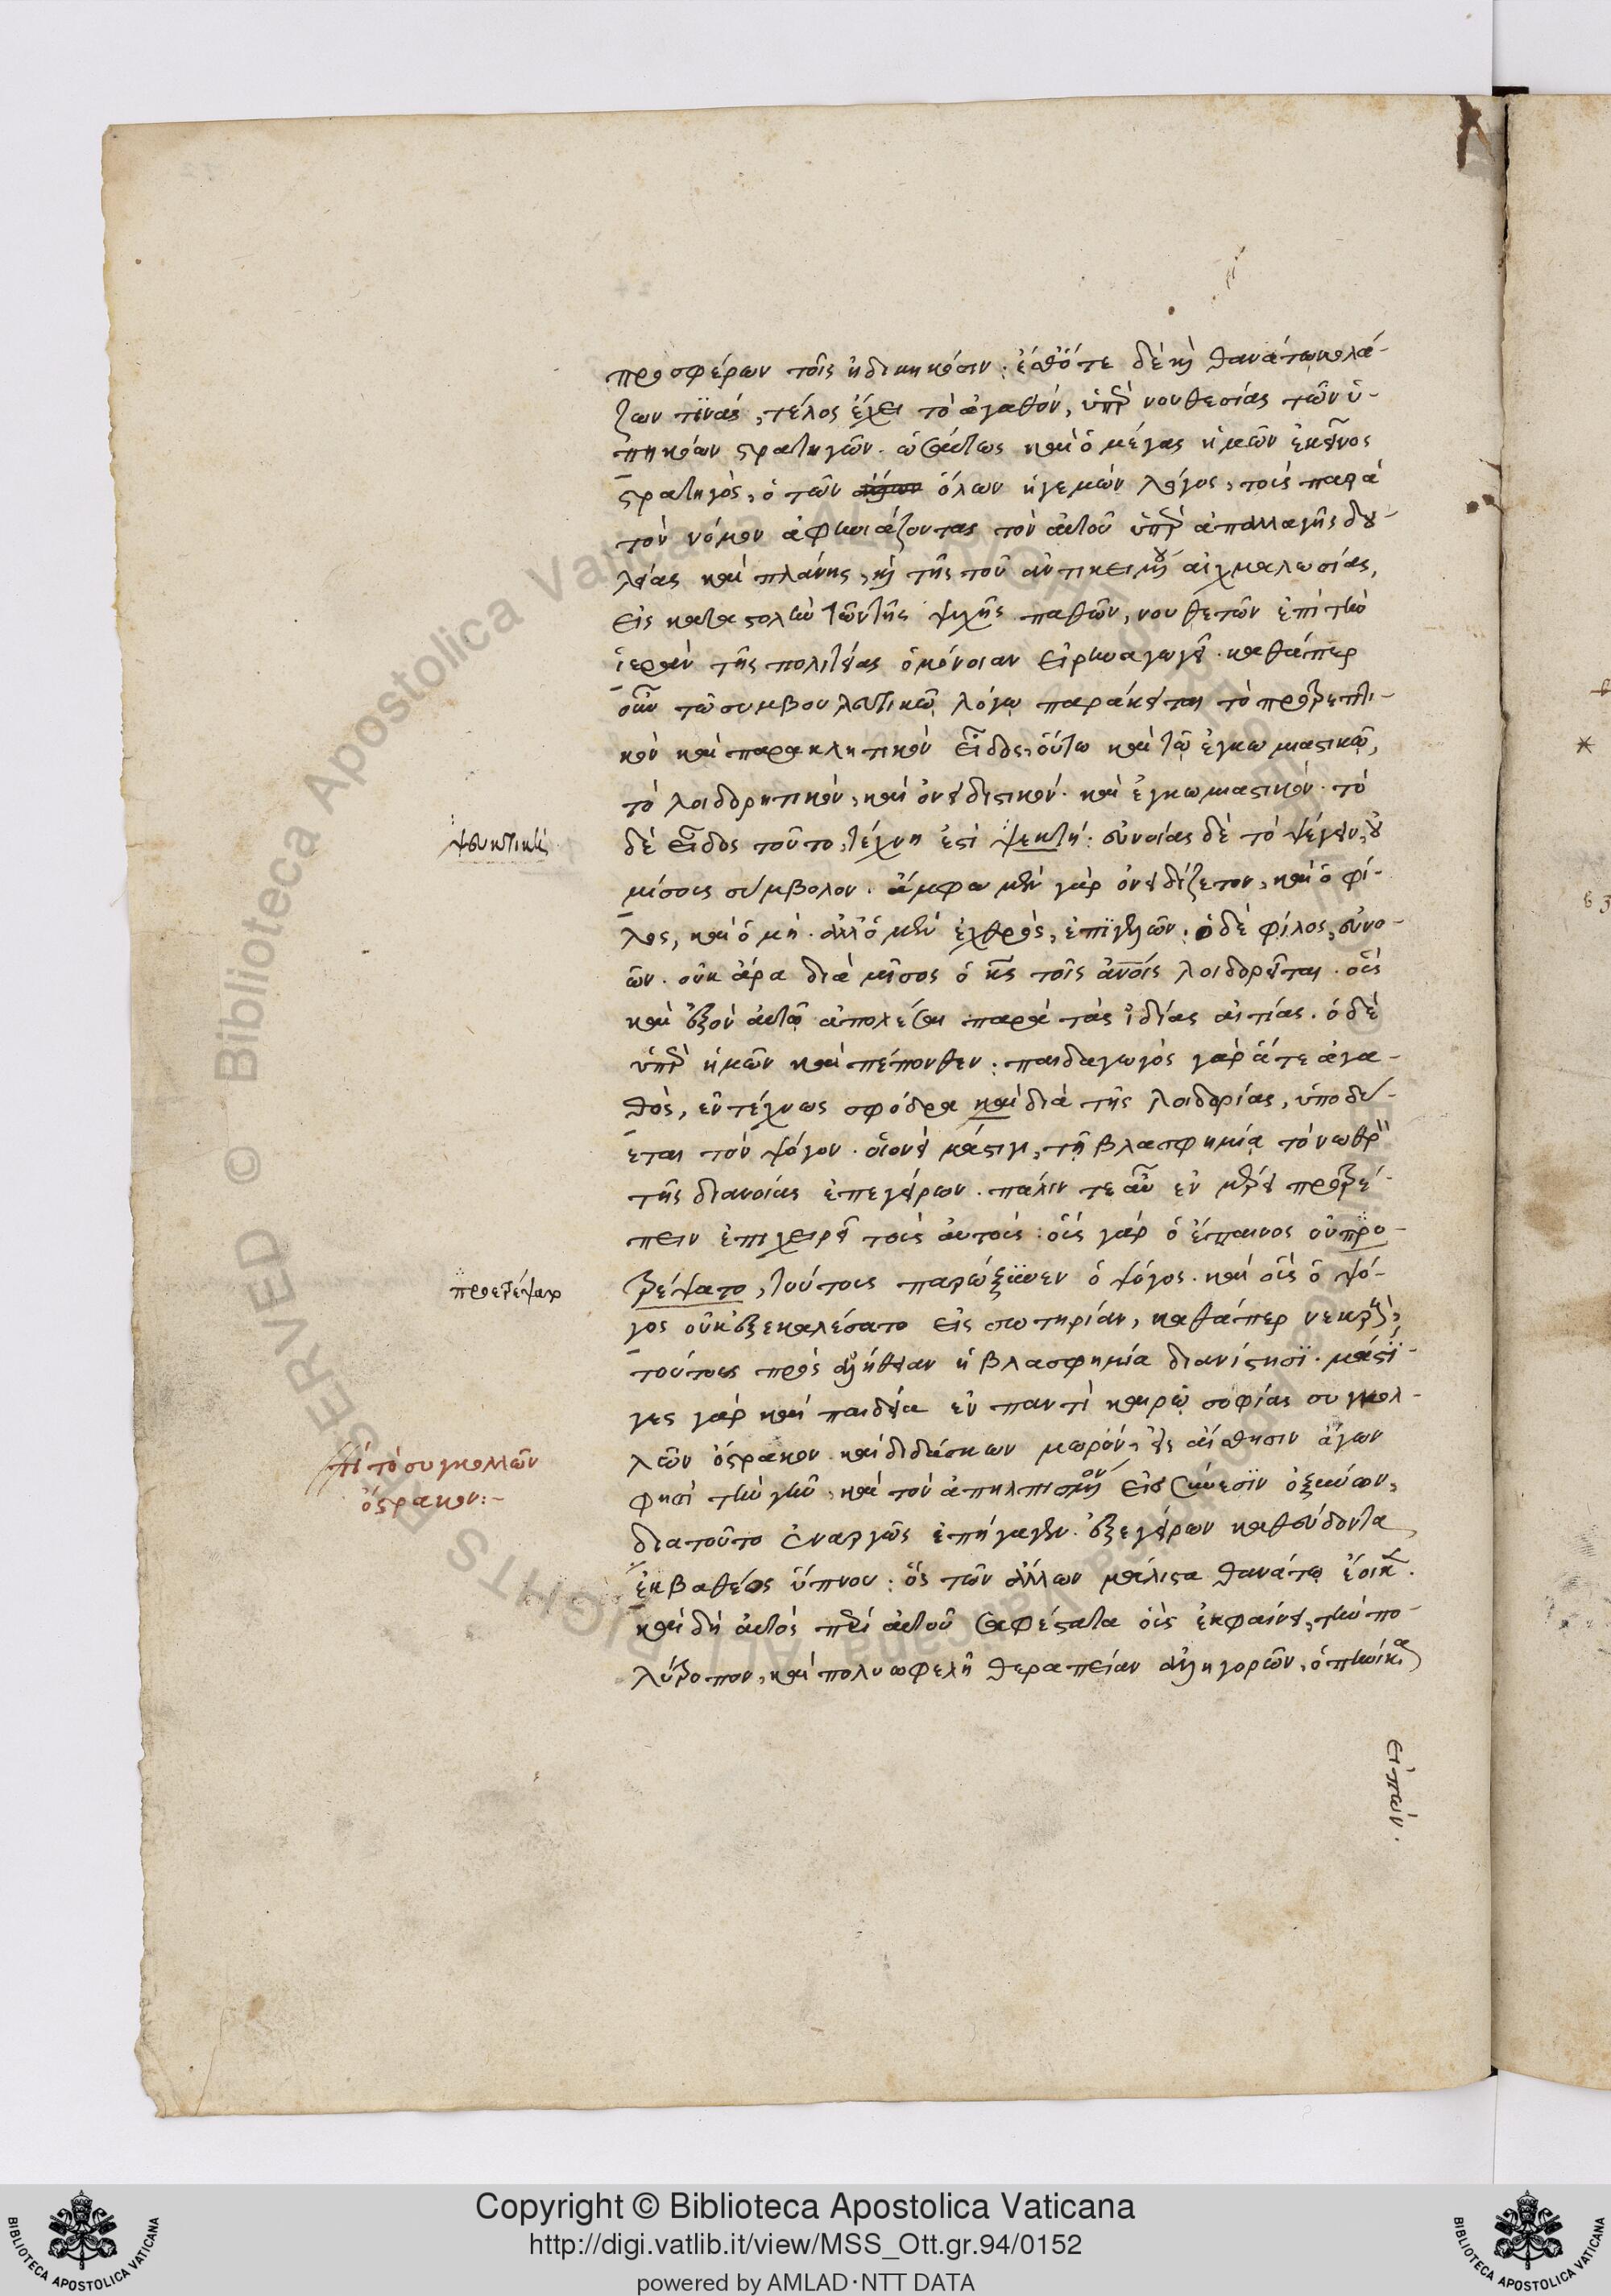 προσφέρων τοῖς ἠδικηκόσιν· ἐσθότε δὲ κὴ θανάτω κολά-
ζων τϊνὰς, τέλος ἔχει τὸ ἀγαθόν, ὑπὲρ νουθεσίας τῶν ὑ-
πηκόων στρατηγῶν. ὡσαύτως καὶ ὁ μέγας ἡμῶν ἐκεῖνος
στρατηγὸς, ὁ τῶν ὅλων ἡγεμὼν λόγος, τοὺς παρὰ
τὸν νόμον ἀφηνιάζοντας τὸν αὐτοῦ ὑπὲρ ἀπαλλαγῆς δου-
λείας καὶ πλάνης, κὴ τῆς τοῦ ἀντικειμένου αἰχμαλωσίας,
εἰς καταστολὴν τῶν τῆς ψυχῆς παθῶν, νουθετῶν ἐπὶ τὴν
ἱερὰν τῆς πολιτείας ὁμόνοιαν εἰρηναγωγεῖ. καθάπερ
οὖν τῶ συμβουλευτικῶ λόγω παράκειται τὸ προτρεπτι-
κὸν καὶ παρακλητικὸν εἶδος, οὕτω καὶ τῶ ἐγκωμιαστικῶ,
τὸ λοιδορητικὸν, καὶ ὀνειδιστικόν. καὶ ἐγκωμιαστικόν. τὸ
δὲ εἶδος τοῦτο, τέχνη ἐστὶ ψεκτή· εὐνοίας δὲ τὸ ψέγειν, οὐ
μίσους σύμβολον. ἄμφω μὲν γὰρ ὀνειδίζετον, καὶ ὁ φί-
λος, καὶ ὁ μή. ἀλλ' ὁ μὲν ἐχθρὸς, ἐπϊγελῶν· ὁ δὲ φίλος, εὐνο-
ῶν. οὐκ ἄρα διὰ μῖσος ὁ κς τοῖς ἀνοις λοιδορεῖται. οὓς
καὶ ἐξὸν αὐτῶ ἀπολέσαι παρὰ τὰς ἰδίας αἰτίας. ὁ δὲ
ὑπὲρ ἡμῶν καὶ πέπονθεν· παιδαγωγὸς γὰρ ἅτε ἀγα-
θὸς, ἐντέχνως σφόδρα καὶ διὰ τῆς λοιδορίας, ὑποδύ-
εται τὸν ψόγον. οἱονεὶ μάστιγι, τῆ βλασφημία τὸ νωθρὸν
τῆς διανοίας ἐπεγείρων. πάλιν τε αὖ ἐν μέρει προτρέ-
πειν ἐπιχειρεῖ τοὺς αὐτούς· οὓς γὰρ ὁ ἔπαινος οὐ προ-
τρέψατο, τούτους παρώξϋνεν ὁ ψόγος. καὶ οὓς ὁ ψό-
γος οὐκ ἐξεκαλέσατο εἰς σωτηρίαν, καθάπερ νεκροὺς,
τούτους πρὸς ἀλήθειαν ἡ βλασφημία διανίστησϊ. μάστϊ-
γες γὰρ καὶ παιδεία ἐν παντὶ καιρῶ σοφίας συγκολ-
λῶν ὄστρακον. καὶ διδάσκων μωρὸν, εἰς αἴσθησιν ἄγων
φησὶ τὴν γῆν, καὶ τὸν ἀπηλπισμένον εἰς σύνεσϊν ὀξύνων,
διατοῦτο ἐναργῶς ἐπήγαγεν. ἐξεγείρων καθεύδοντα
ἐκ βαθέος ὕπνου· ὃς τῶν ἄλλων μάλιστα θανάτω ἔοικεν.
καὶ δὴ αὐτὸς περὶ αὐτοῦ σαφέστατα ὁ ἰς ἐκφαίνει, τὴν πο-
λύτροπον, καὶ πολυωφελῆ θεραπείαν ἀλληγορῶν, ὁπηνίκα
εἰπών.
ψευκτικὴ
προετρέψατο
τί τὸ συγκολλῶν
ὄστρακον:-
Copyright © Biblioteca Apostolica Vaticana
http://digi.vatlib.it/view/MSS_Ott.gr.94/0152
powered by AMLAD·NTT DATA